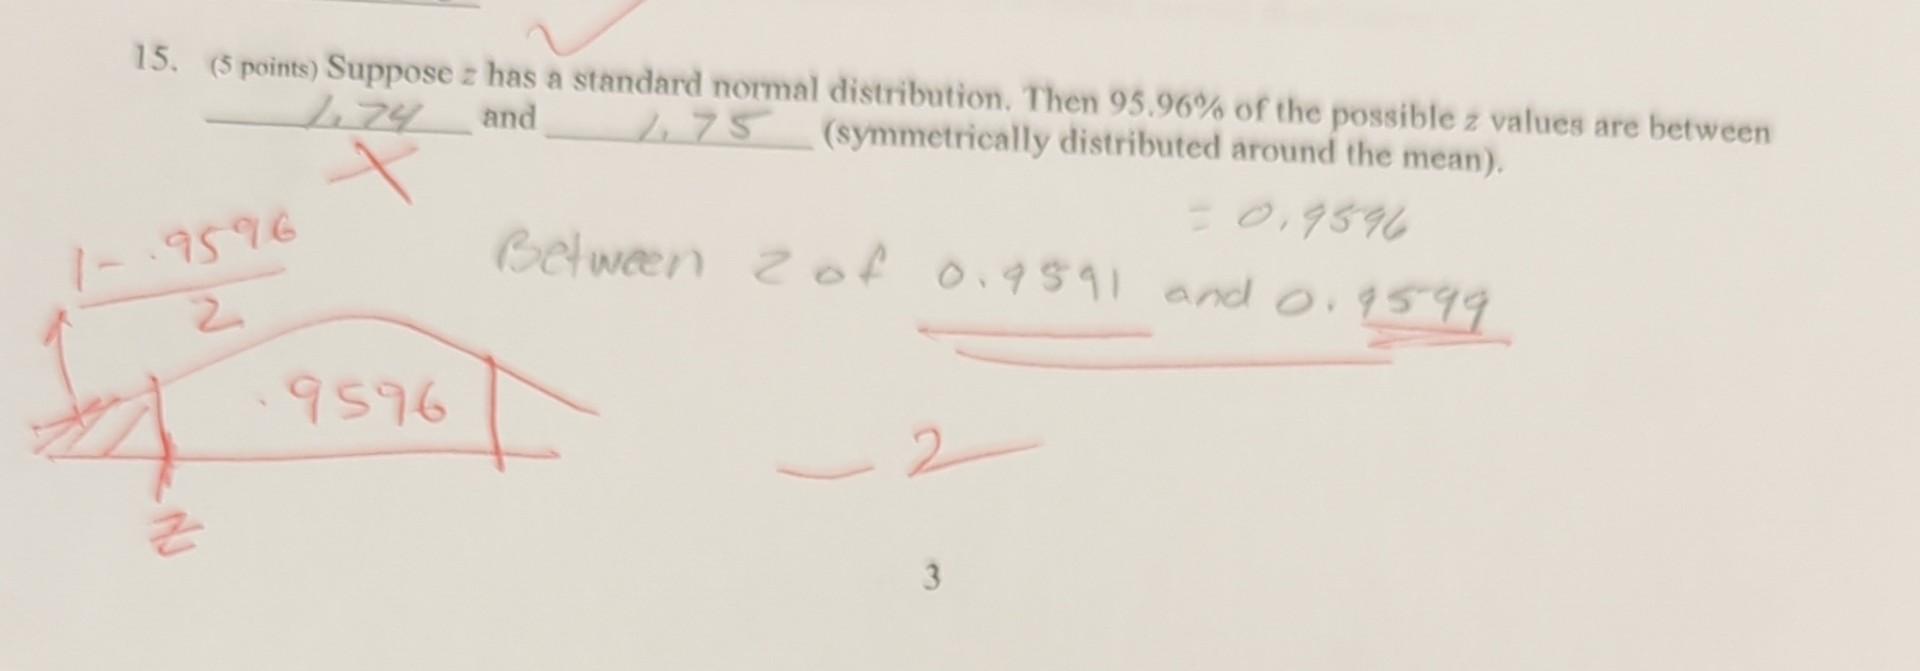 15. (5 points) Suppose z has a standard normal distribution. Then 95.96% of the possible z values are between
1.74 and 1.75 (symmetrically distributed around the mean).
= 0.9596
1 - .9596
2
Between z of 0.9591 and 0.9599
.9596
- 2
z
3